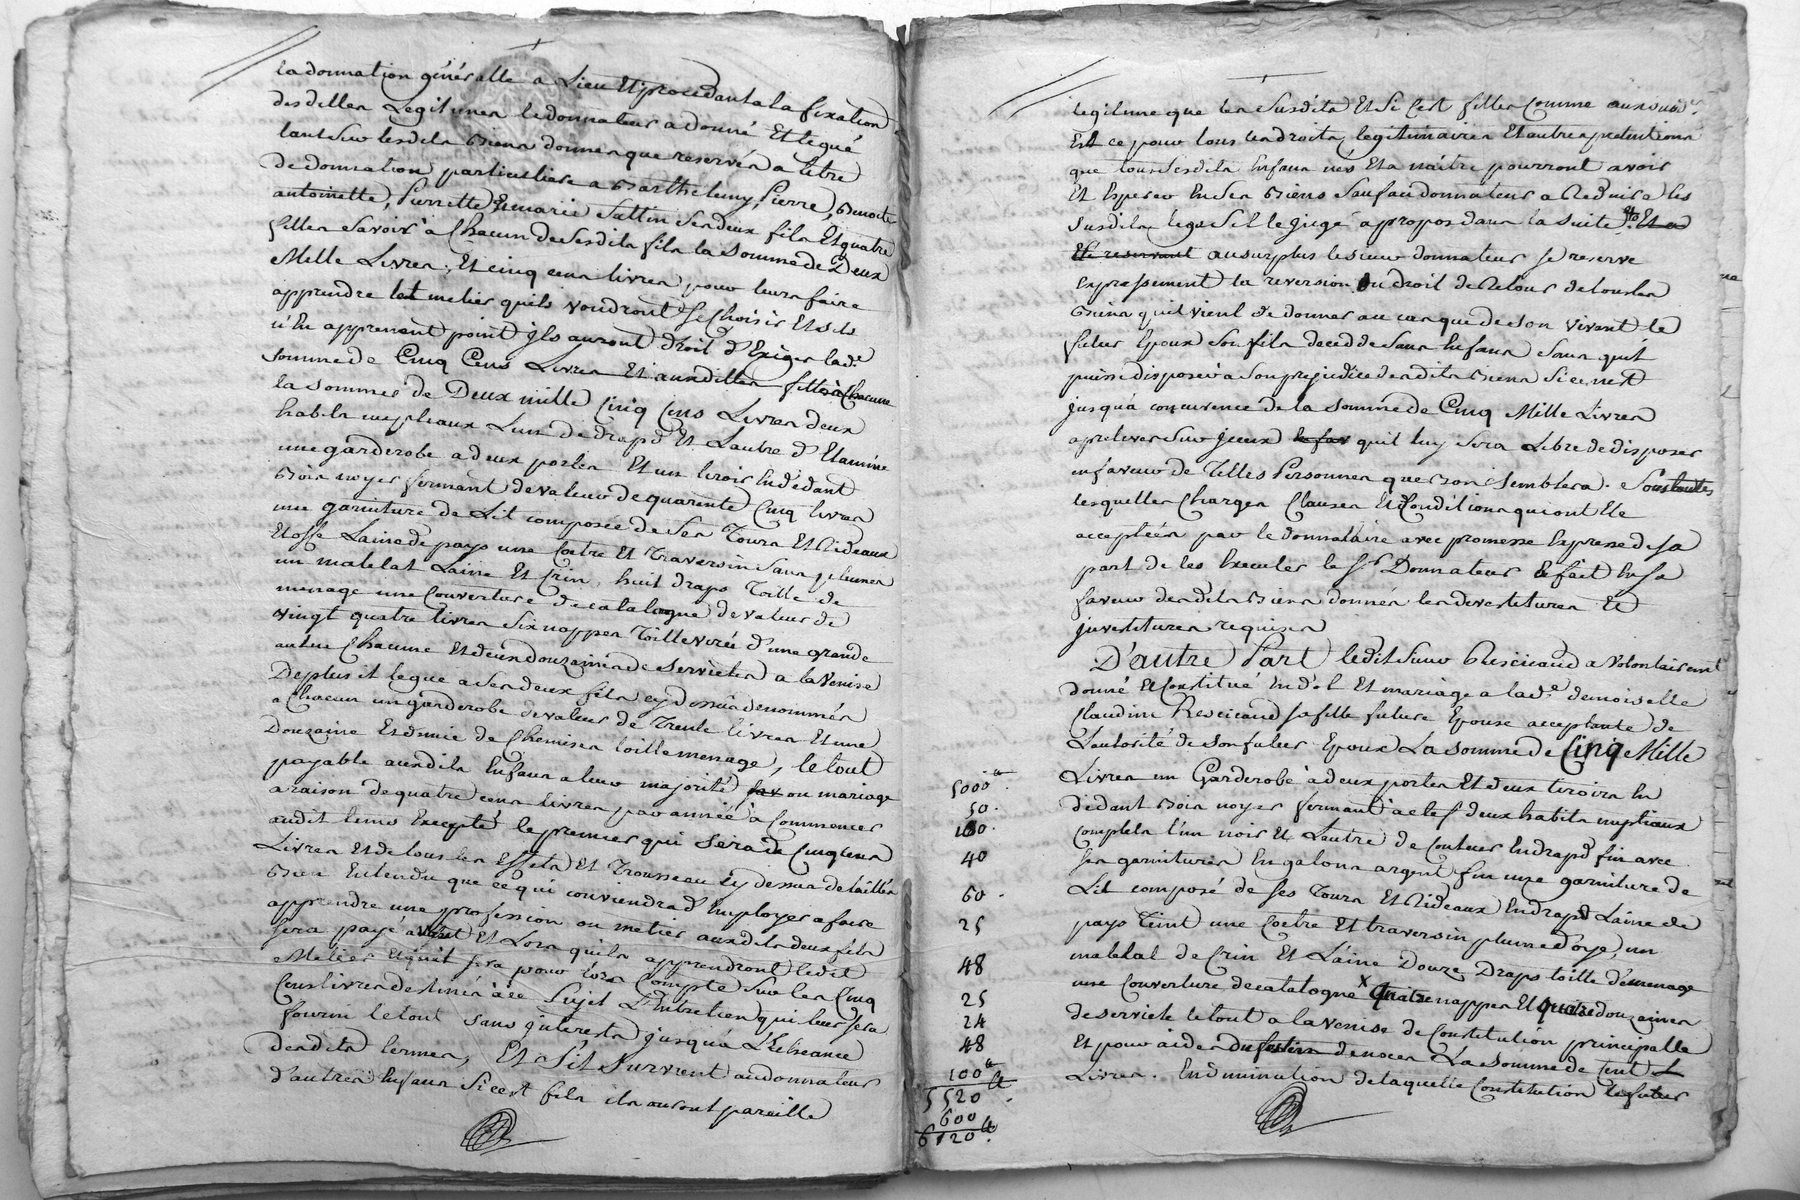 la donnation généralle a Lieu Et procedant a la fixation
desdittes Legitimes le donnateur a donné Et legué
tant sur lesdits Biens donnés que reservés a titre
de donnation particuliere a Barthelemy, Pierre, Benoite
antoinette, Pierrette Et marie Sattin Ses deux fils Et quatre
filles Savoir à Chacun de Sesdits fils la Somme de Deux
Mille Livres, Et cinq cens livres pour leurs faire
apprendre let metier quils voudront Se Choisir Et s'ils
n'En apprenent point jls auront droit d'Exiger lade
Somme de Cinq Cens Livres Et auxdittes filles à Chacune
la Somme de Deux mille Cinq Cens Livres deux
habits nuptiaux L'un de drapd Et L'autre d'Etamine
une garderobe a deux portes Et un tiroir En d'edant
Bois noyer fermant de valeur de quarente Cinq livres
une garniture de Lit composée de Ses Tours Et Rideaux
Etoffe Laine de pays une Coetre Et Traversin Sans plumes
un matelat Laine Et Crin, huit draps Toille de
menage une Couverture de catalogne de valeur de
vingt quatre livres Six nappes Toille d'une grande
aulne Chacune Et deux douzaines de Serviettes a la Venise
De plus il legue a Ses deux fils cy dessus denommés
a Chacun un garderobe de valeur de Trente livres Et une
Douzaine Et dmie de Chemises toille menage, le tout
payable auxdits Enfans a leur majorité ou mariage
a raison de quatre cens livres par année à Commencer
audit tems Excepté le premier qui Sera de Cinq cens
Livres Et de tous les Effets Et Trousseau cy dessus detaillés
Bien Entendu que ce qui conviendra d'Employer a faire
apprendre une profession ou metier auxdits deux fils
Sera payé avant Et Lors quils apprendront ledit
Metier Et quil Sera pour lors Compte Sur les Cinq
Cens livres destinés à ce Sujet L'Entretien qui leur Sera
fourni le tout sans jnterests jusqu'a L'Echeance
desdits termes, Et S'il Survient au donnateur
d'autres Enfans Si cest fils ils auront pareille
legitime que les Susdits Et Si Cest filles Comme auxsusd.es
Et ce pour tous les droits legitimaires Et autres pretentions
que tous Sesdits Enfans nes Et a naitre pourront avoir
Et Esperer En Ses Biens Sauf au donnateur a Reduire les
Susdits legs S'il le juge a propos dans la Suite Et a
Ete reservant au surplus le sieur donnateur Se reserve
Expressement la reversion ou droit de Retour de tous les
Biens quil vient de donner au cas que de Son vivant le
futur Epoux Son fils decedde Sans Enfans Sans quil
puisse disposer à Son prejudice desdits Biens Si ce nest
jusqu'a concurence de la Somme de Cinq Mille Livres
a prelever Sur jceux quil luy Sera Libre de disposer
en faveur de Telles Personnes que bon Semblera. Sous toutes
lesquelles Charges Clauses Et Conditions qui ont Ete
acceptées par le donnataire avec promesse Expresse de Sa
part de les Executer le Sr Donnateur Ee fait En Sa
faveur desdits Biens donnés les devestitures Et
jnvestitures requises
D'autre Part ledit Sieur Resicaud a Volontairement
donné Et Constitué En dot Et mariage a lade demoiselle
Claudine Resicaud Sa fille future Epouse acceptante de
L'autorité de Son futur Epoux La Somme de Cinq Mille
Livres un Garderobe à deux portes Et deux tiroirs En
dedant Bois noyer fermant à clef deux habits nuptiaux
Complets l'un noir Et L'autre de Couleur En drapd fin avec
Ses garnitures En galons argent fin une garniture de
Lit composé de Ses Tours Et Rideaux En drapd Laine de
pays Teint une Coetre Et traversin plume d'oye, un
matelat de Crin Et Laine Douze Draps toille d'menage
une Couverture de catalogne x Quatre nappes Et quatre douzaines
de Serviete le tout a la Venise de Constitution principalle
Et pour aider du festin de noces La Somme de Cent
Livres. En diminution de laquelle Constitution le futur
5000tt
50.
100.
40
60.
25
48
25
24
48
100tt
5520tt.
600
6120tt.